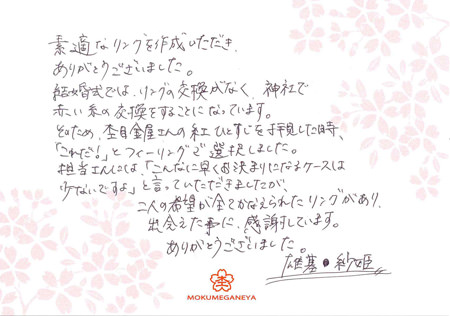 素適なリングを作成しただき、
ありがとうございました。
結婚式では、リングの交換がなく、神社で
赤い糸の交換をすることになっています。
そのため、杢目金屋さんの紅ひとすじを拝見した時、
「これだ!」とフィーリングで選択しました。
担当さんには、「こんなに早くお決まりになるケースは
少ないですよ」と言っていただきましたが、
二人の希望が全てかなえられたリングがあり、
出会えた事に、感謝しています。
ありがとうございました。
雄基・紗姫
MOKUMEGANEYA